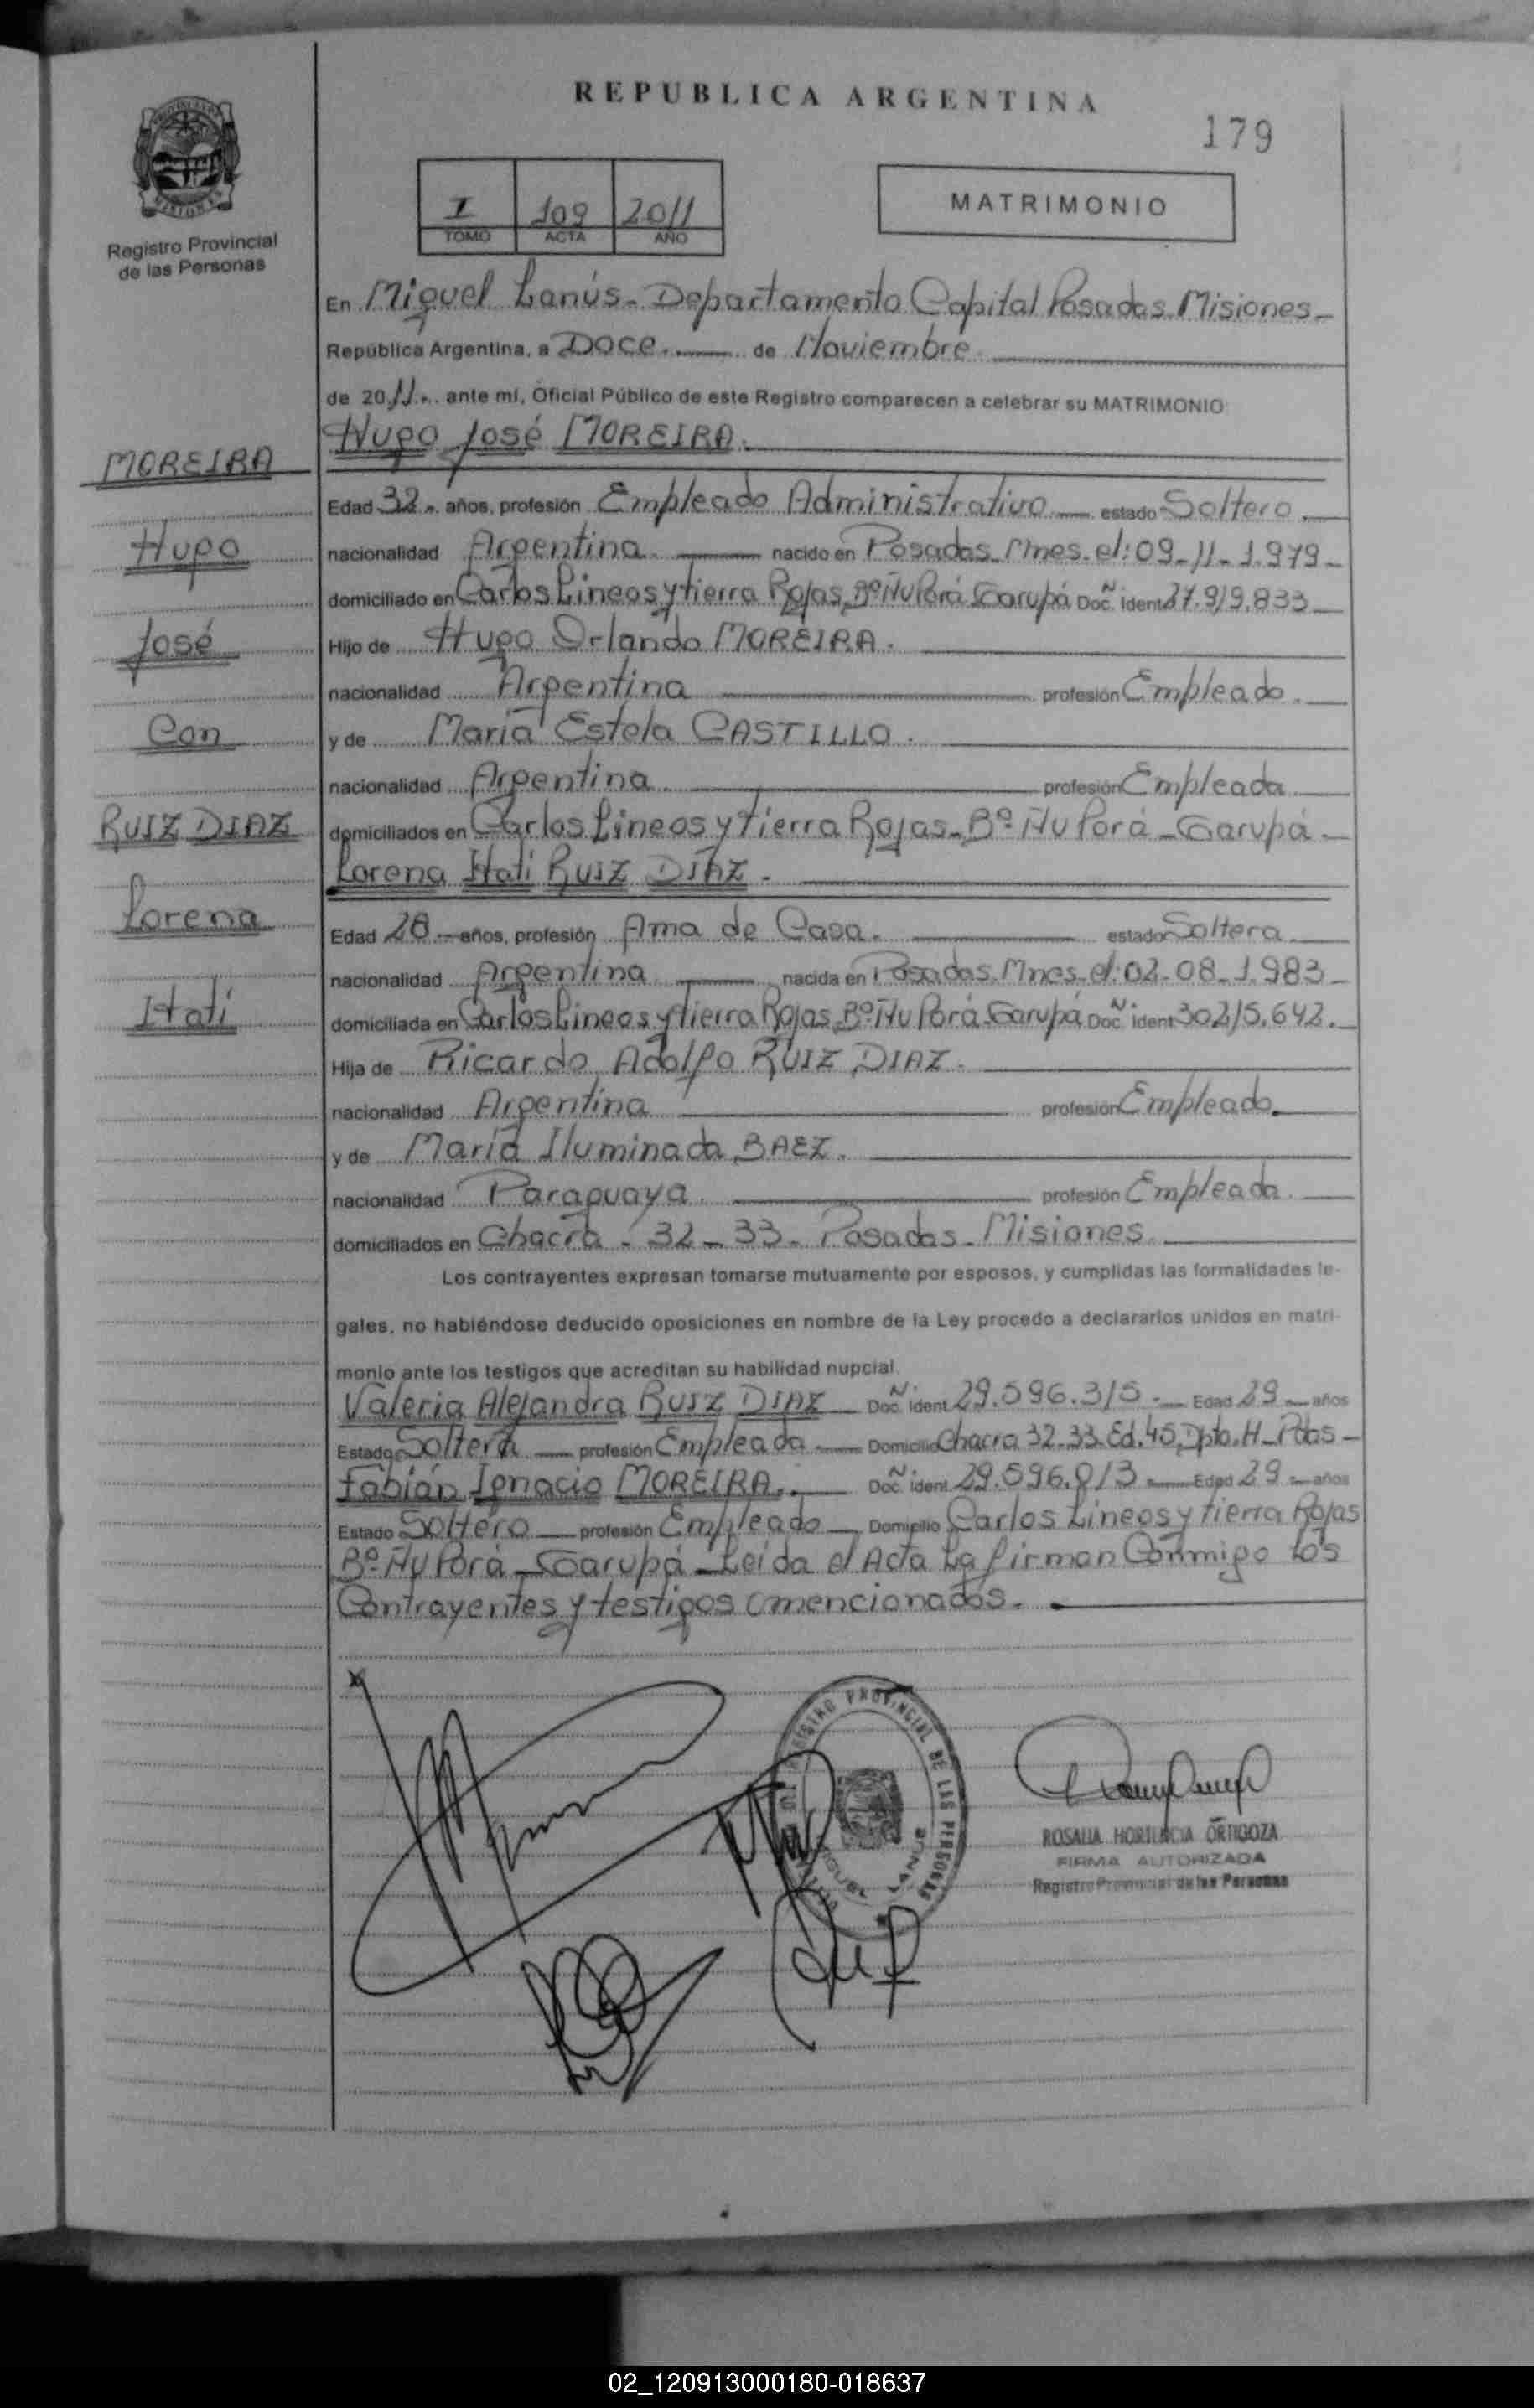 REPUBLICA ARGENTINA
179
MATRIMONIO
I 109 2011
TOMO ACTA AÑO
Registro Provincial
de las Personas
En Miguel Lanús - Departamento Capital Posadas Misiones -
República Argentina, a Doce de Noviembre
de 2011 ante mí, Oficial Público de este Registro comparecen a celebrar su MATRIMONIO:
Hugo José MOREIRA.
MOREIRA
Edad 32 años, profesión Empleado Administrativo estado Soltero.
Hugo
nacionalidad Argentina nacido en Posadas Mnes. el: 09-11-1.979-
domiciliado en Carlos Lineos y tierra Rojas Bº Ñu Porá Garupá Doc. Ident 27.919.833
José
Hijo de Hugo Orlando MOREIRA.
nacionalidad Argentina profesión Empleado.
Con
y de María Estela CASTILLO.
nacionalidad Argentina profesión Empleada
RUIZ DIAZ
domiciliados en Carlos Lineos y tierra Rojas - Bº Ñu Porá - Garupá -
Lorena Itatí RUIZ DIAZ.
Lorena
Edad 28 años, profesión Ama de Casa. estado Soltera
nacionalidad Argentina nacida en Posadas. Mnes. el: 02-08-1.983-
Itatí
domiciliada en Carlos Lineos y tierra Rojas Bº Ñu Porá Garupá Doc. Ident 30.215.642.
Hija de Ricardo Adolfo RUIZ DIAZ.
nacionalidad Argentina profesión Empleado.
y de María Iluminada BAEZ.
nacionalidad Paraguaya profesión Empleada.
domiciliados en Chacra - 32 - 33 - Posadas - Misiones.
Los contrayentes expresan tomarse mutuamente por esposos, y cumplidas las formalidades le-
gales, no habiéndose deducido oposiciones en nombre de la Ley procedo a declararlos unidos en matri-
monio ante los testigos que acreditan su habilidad nupcial.
Valeria Alejandra RUIZ DIAZ Doc. Ident. 29.596.315. Edad 29 años
Estado Soltera profesión Empleada Domicilio Chacra 32-33 Ed. 45, Dpto. H - Pdas -
Fabián Ignacio MOREIRA. Doc. Ident. 29.596.813 Edad 29 años
Estado Soltero profesión Empleado Domicilio Carlos Lineos y tierra Rojas
Bº Ñu Porá - Garupá - Leída el Acta La firman Conmigo los
Contrayentes y testigos mencionados.
REGISTRO PROVINCIAL DE LAS PERSONAS
MIGUEL LANUS
ROSALIA HORTENCIA ORTIGOZA
FIRMA AUTORIZADA
Registro Provincial de las Personas
02_120913000180-018637